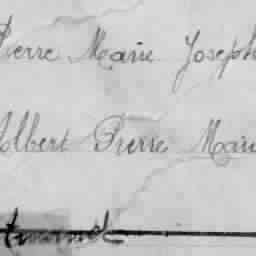 Pierre Marie Joseph
Albert Pierre Marie